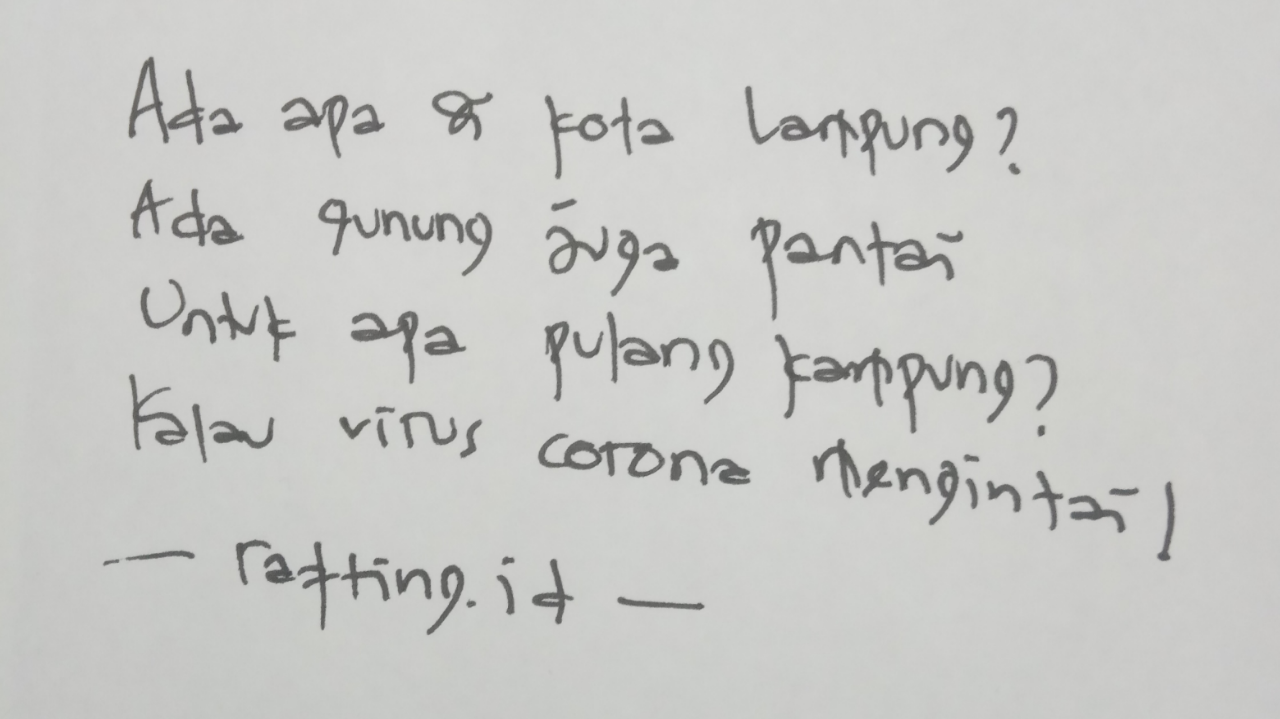 Ada apa di kota Lampung?
Ada gunung juga pantai
Untuk apa pulang kampung?
Kalau virus corona mengintai!
— rafting.id —